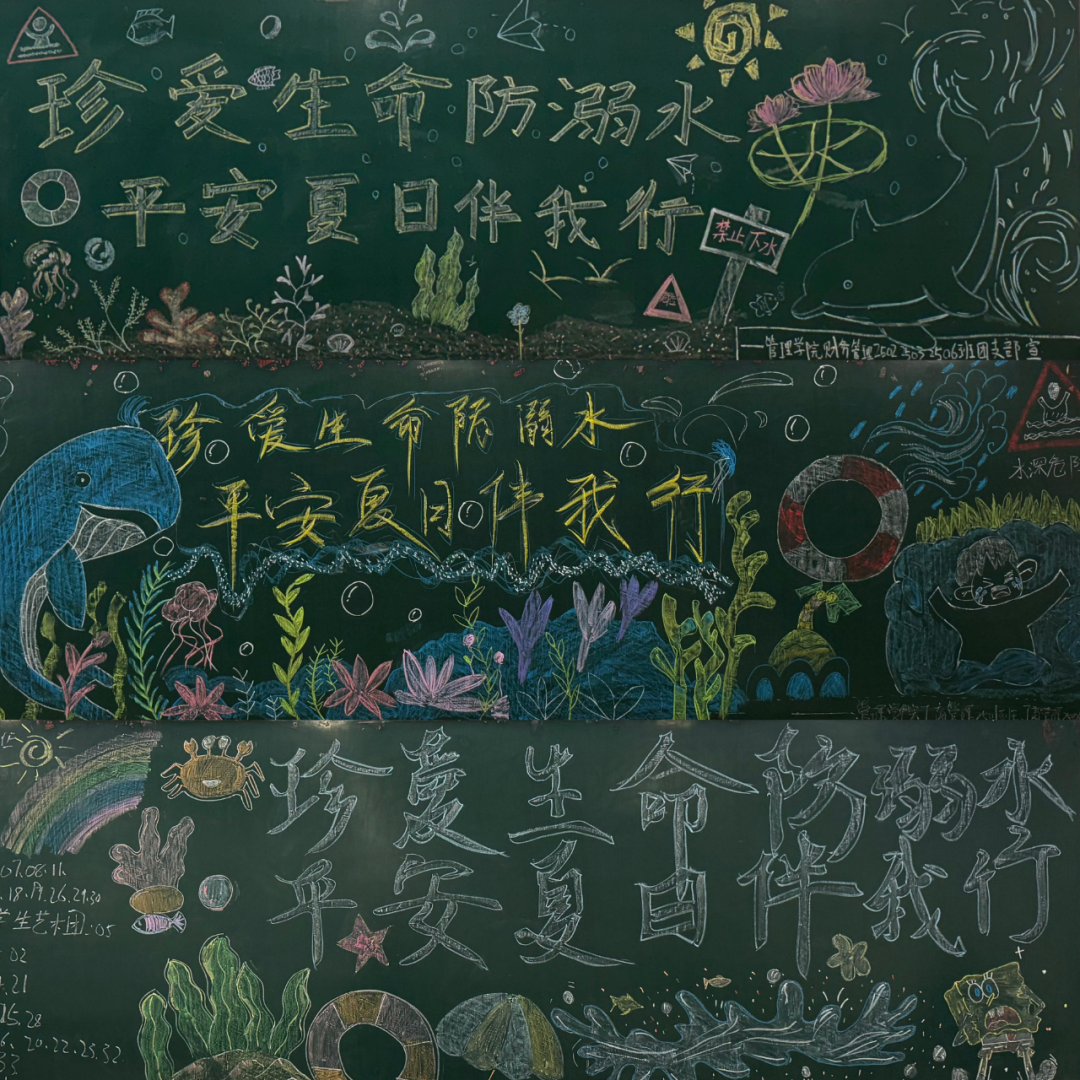 珍爱生命防溺水
平安夏日伴我行
禁止下水
管理学院财务管理2502 2503 2506班团支部宣
珍爱生命防溺水
平安夏日伴我行
水深危险
珍爱生命防溺水
平安夏日伴我行
07.08.11
.18.19.26.29.30
学生艺术团:05
.02
.21
15.28
6.20.22.25.32
33